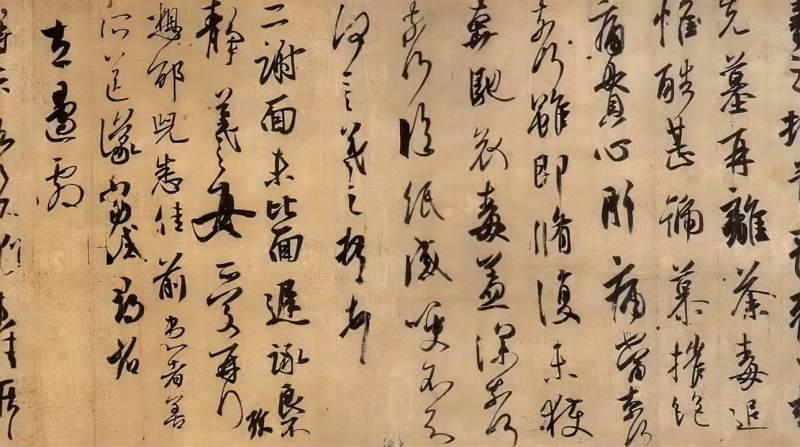 羲之頓首喪亂之極
先墓再離荼毒追
惟酷甚號慕摧絕
痛貫心肝痛當奈何
奈何雖即脩復未獲
奔馳哀毒益深奈何
奈何臨紙感哽不知
何言羲之頓首
二謝面未比面遲詠良不
靜羲之女愛再拜
想邵兒悉佳前患者善
所送議當試尋省
左邊劇